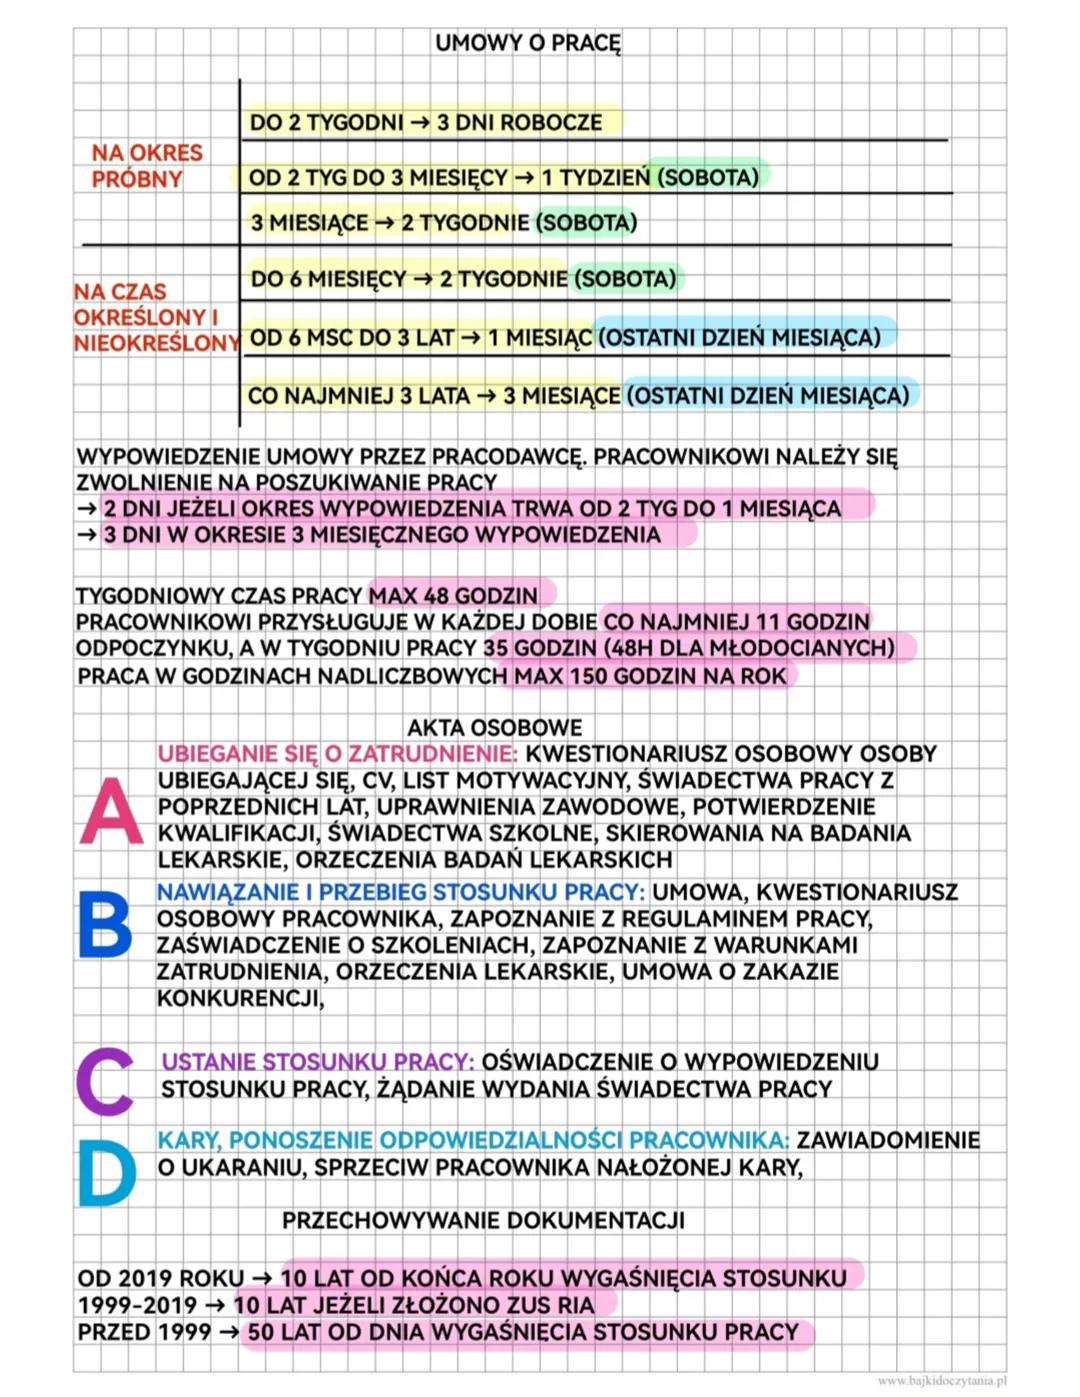 UMOWY O PRACĘ
NA OKRES PRÓBNY
DO 2 TYGODNI → 3 DNI ROBOCZE
OD 2 TYG DO 3 MIESIĘCY → 1 TYDZIEŃ (SOBOTA)
3 MIESIĄCE → 2 TYGODNIE (SOBOTA)
NA CZAS OKREŚLONY I NIEOKREŚLONY
DO 6 MIESIĘCY → 2 TYGODNIE (SOBOTA)
OD 6 MSC DO 3 LAT → 1 MIESIĄC (OSTATNI DZIEŃ MIESIĄCA)
CO NAJMNIEJ 3 LATA → 3 MIESIĄCE (OSTATNI DZIEŃ MIESIĄCA)
WYPOWIEDZENIE UMOWY PRZEZ PRACODAWCĘ. PRACOWNIKOWI NALEŻY SIĘ
ZWOLNIENIE NA POSZUKIWANIE PRACY
→ 2 DNI JEŻELI OKRES WYPOWIEDZENIA TRWA OD 2 TYG DO 1 MIESIĄCA
→ 3 DNI W OKRESIE 3 MIESIĘCZNEGO WYPOWIEDZENIA
TYGODNIOWY CZAS PRACY MAX 48 GODZIN
PRACOWNIKOWI PRZYSŁUGUJE W KAŻDEJ DOBIE CO NAJMNIEJ 11 GODZIN
ODPOCZYNKU, A W TYGODNIU PRACY 35 GODZIN (48H DLA MŁODOCIANYCH)
PRACA W GODZINACH NADLICZBOWYCH MAX 150 GODZIN NA ROK
AKTA OSOBOWE
A
UBIEGANIE SIĘ O ZATRUDNIENIE: KWESTIONARIUSZ OSOBOWY OSOBY
UBIEGAJĄCEJ SIĘ, CV, LIST MOTYWACYJNY, ŚWIADECTWA PRACY Z
POPRZEDNICH LAT, UPRAWNIENIA ZAWODOWE, POTWIERDZENIE
KWALIFIKACJI, ŚWIADECTWA SZKOLNE, SKIEROWANIA NA BADANIA
LEKARSKIE, ORZECZENIA BADAŃ LEKARSKICH
B
NAWIĄZANIE I PRZEBIEG STOSUNKU PRACY: UMOWA, KWESTIONARIUSZ
OSOBOWY PRACOWNIKA, ZAPOZNANIE Z REGULAMINEM PRACY,
ZAŚWIADCZENIE O SZKOLENIACH, ZAPOZNANIE Z WARUNKAMI
ZATRUDNIENIA, ORZECZENIA LEKARSKIE, UMOWA O ZAKAZIE
KONKURENCJI,
C
USTANIE STOSUNKU PRACY: OŚWIADCZENIE O WYPOWIEDZENIU
STOSUNKU PRACY, ŻĄDANIE WYDANIA ŚWIADECTWA PRACY
D
KARY, PONOSZENIE ODPOWIEDZIALNOŚCI PRACOWNIKA: ZAWIADOMIENIE
O UKARANIU, SPRZECIW PRACOWNIKA NAŁOŻONEJ KARY,
PRZECHOWYWANIE DOKUMENTACJI
OD 2019 ROKU → 10 LAT OD KOŃCA ROKU WYGAŚNIĘCIA STOSUNKU
1999-2019 → 10 LAT JEŻELI ZŁOŻONO ZUS RIA
PRZED 1999 → 50 LAT OD DNIA WYGAŚNIĘCIA STOSUNKU PRACY
www.bajkidoczytania.pl